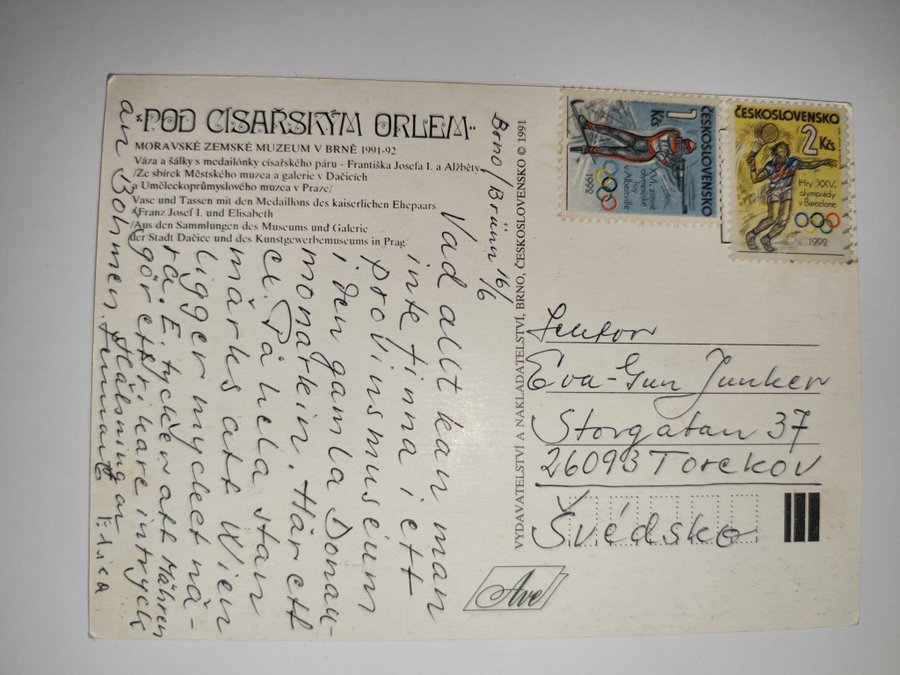 "POD CÍSAŘSKÝM ORLEM"
MORAVSKÉ ZEMSKÉ MUZEUM V BRNĚ 1991-92
Váza a šálky s medailónky císařského páru - Františka Josefa I. a Alžběty
/Ze sbírek Městského muzea a galerie v Dačicích
a Uměleckoprůmyslového muzea v Praze/
Vase und Tassen mit den Medaillons des kaiserlichen Ehepaars
Franz Josef I. und Elisabeth
/Aus den Sammlungen des Museums und Galerie
der Stadt Dačice und des Kunstgewerbemuseums in Prag/
Brno/Brünn 16/6
Vad allt kan man
inte finna i ett
provinsmuseum
i den gamla Donau-
monarkin. Här ett
ex. På hela stan
märks att Wien
ligger mycket nä-
ra. E. tycker att Mähren
gör ett rikare intryck
än Böhmen. Hälsningar
Lennart
VYDAVATELSTVÍ A NAKLADATELSTVÍ, BRNO, ČESKOSLOVENSKO © 1991
Ave
ČESKOSLOVENSKO
1 Kčs
XVI. zimní
olympijské
hry v Albertville
1992
ČESKOSLOVENSKO
2 Kčs
Hry XXV.
olympiády
v Barceloně
1992
Eva-Gun Junker
Storgatan 37
26093 Torekov
Švédsko